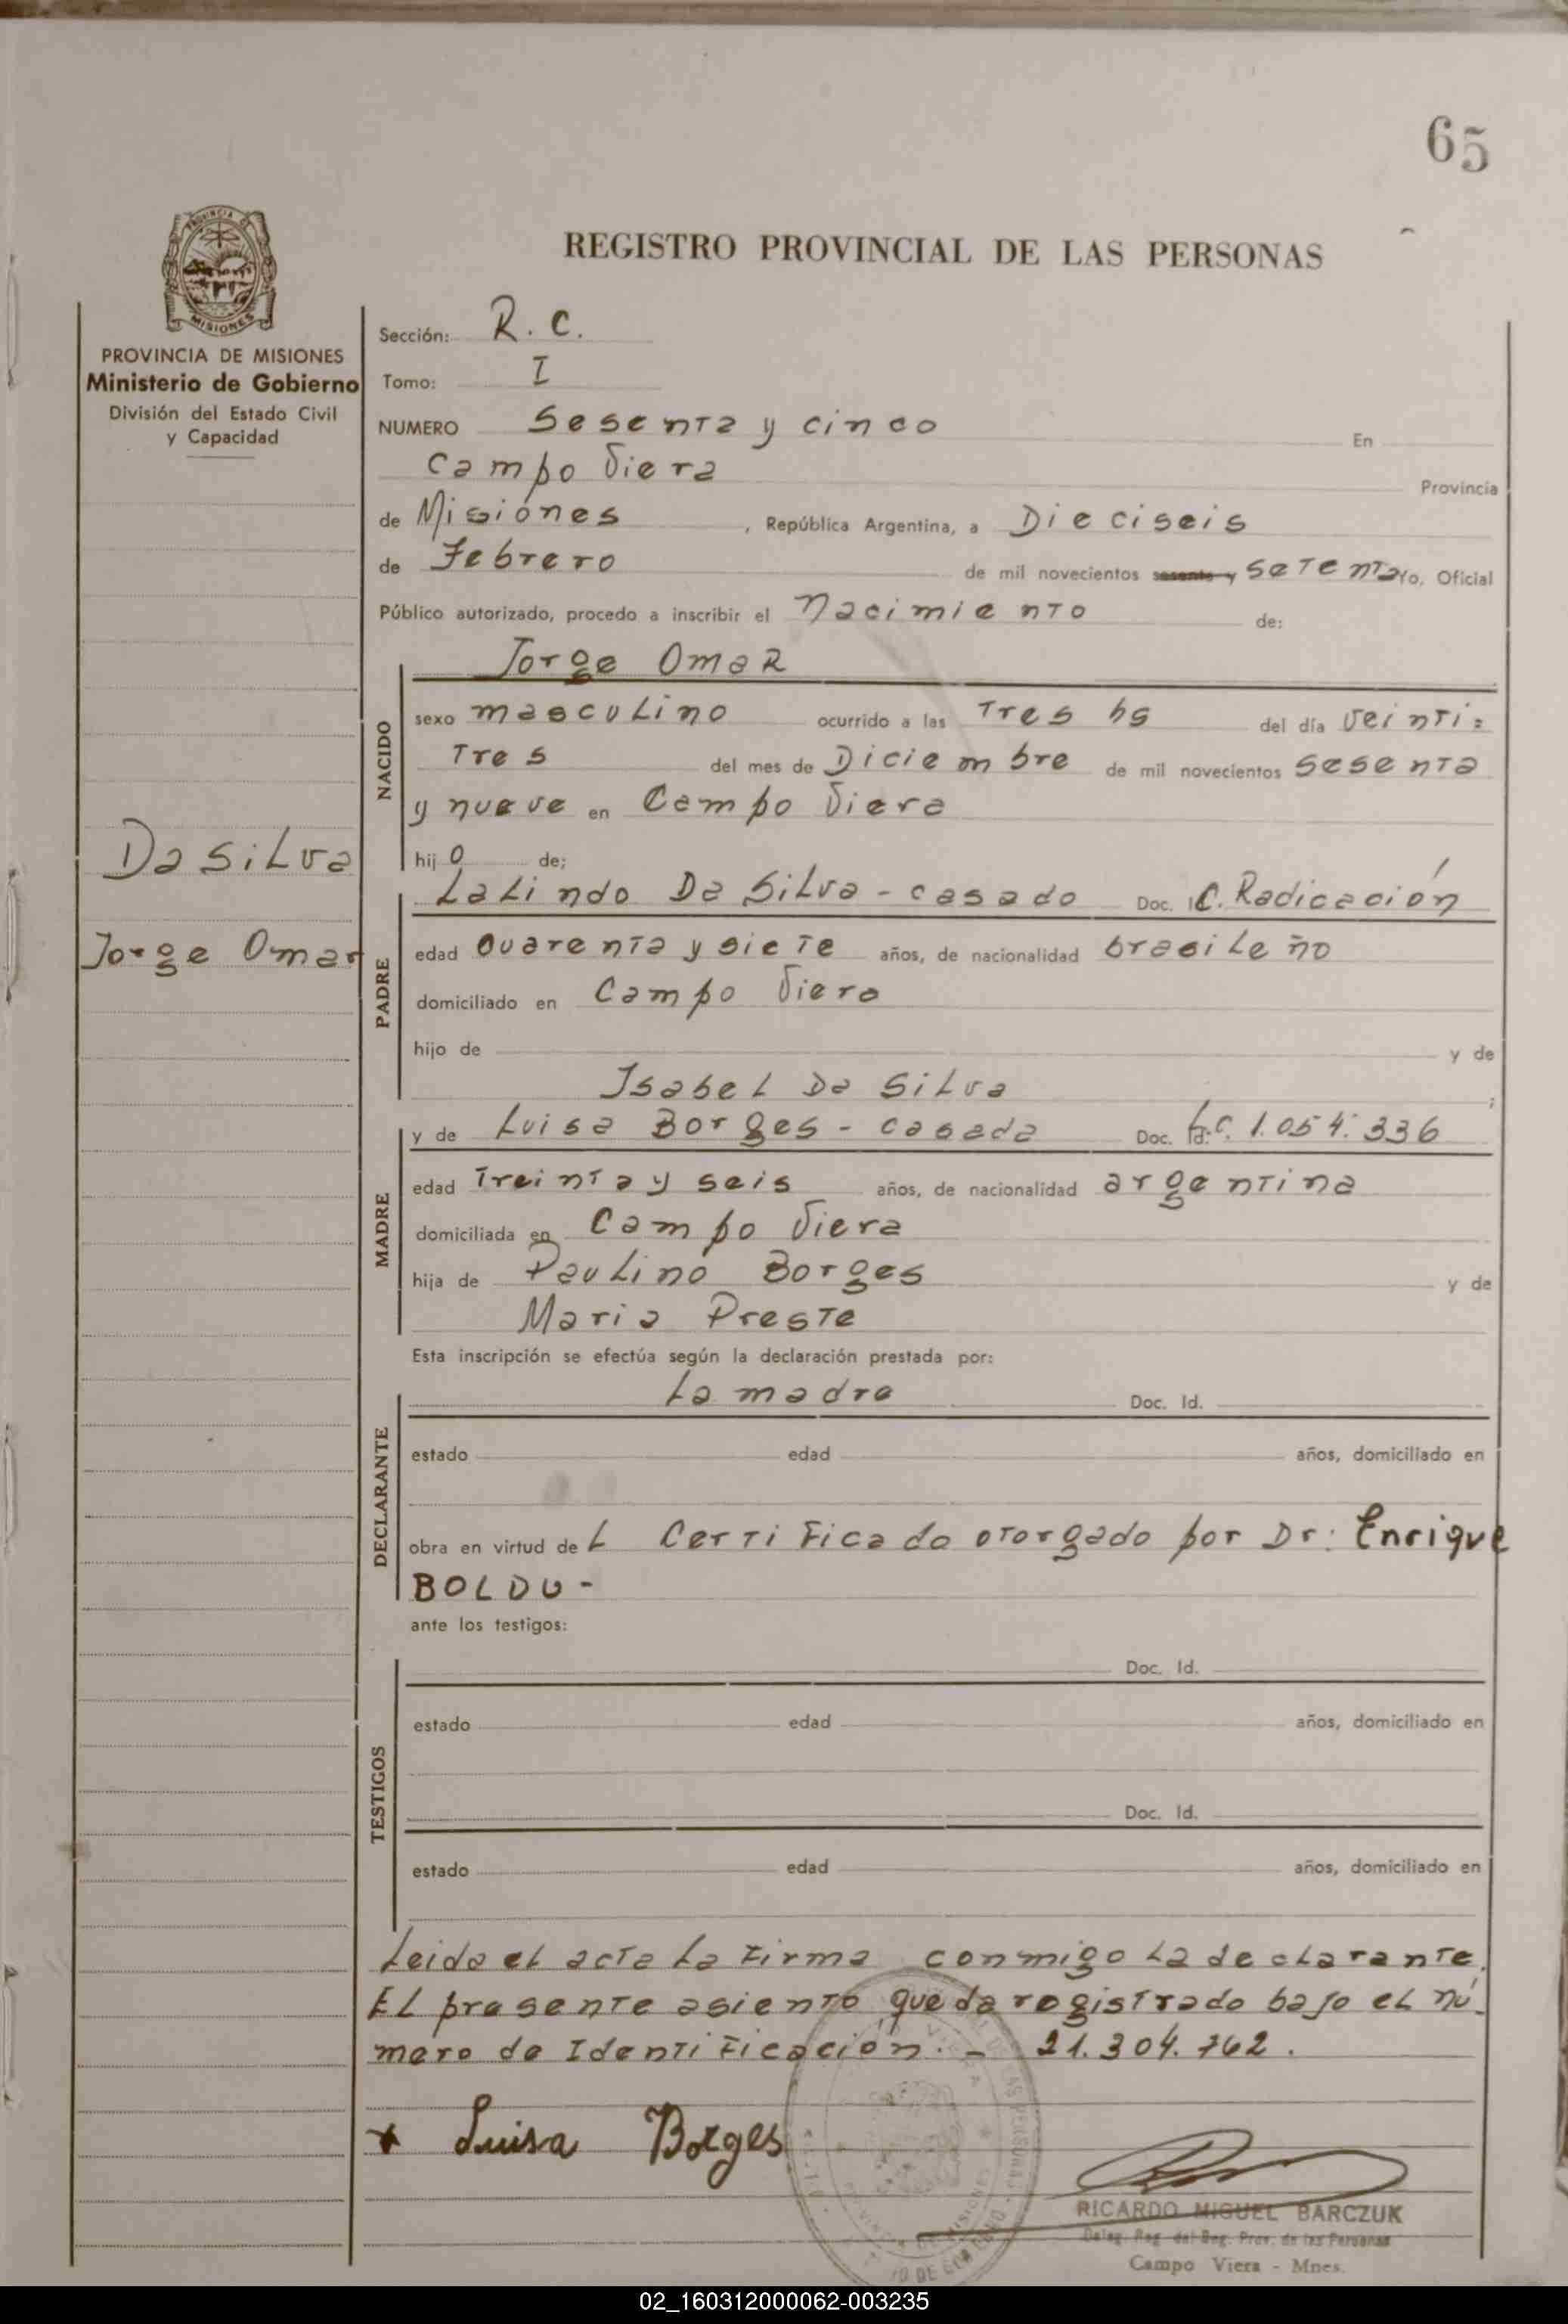 65
REGISTRO PROVINCIAL DE LAS PERSONAS
PROVINCIA DE MISIONES
Ministerio de Gobierno
División del Estado Civil
y Capacidad
Sección: R. C.
Tomo: I
NUMERO Sesenta y cinco En
Campo Viera Provincia
de Misiónes, República Argentina, a Dieciseis
de Febrero de mil novecientos sesenta y setenta Yo, Oficial
Público autorizado, procedo a inscribir el Nacimiento de:
Jorge Omar
NACIDO
sexo masculino ocurrido a las Tres hs del día veinti=
tres del mes de Diciembre de mil novecientos sesenta
y nueve en Campo Viera
hijo de:
Da Silva
Jorge Omar
PADRE
Lalindo Da Silva - casado Doc. C. Radicación
edad cuarenta y siete años, de nacionalidad brasileño
domiciliado en Campo Viera
hijo de y de
Isabel Da Silva;
MADRE
y de Luisa Borges - casada Doc. Id. L.C. 1.054.336
edad Treinta y seis años, de nacionalidad argentina
domiciliada en Campo Viera
hija de Paulino Borges y de
Maria Preste
Esta inscripción se efectúa según la declaración prestada por:
DECLARANTE
La madre Doc. Id.
estado edad años, domiciliado en
obra en virtud del Certificado otorgado por Dr: Enrique
BOLDU -
ante los testigos:
TESTIGOS
Doc. Id.
estado edad años, domiciliado en
Doc. Id.
estado edad años, domiciliado en
Leida el acta la firma conmigo la declarante.
El presente asiento queda registrado bajo el nú-
mero de Identificación. - 21.304.762.
Luisa Borges
RICARDO MIGUEL BARCZUK
Deleg. Reg. del Reg. Prov. de las Personas
Campo Viera - Mnes.
02_160312000062-003235